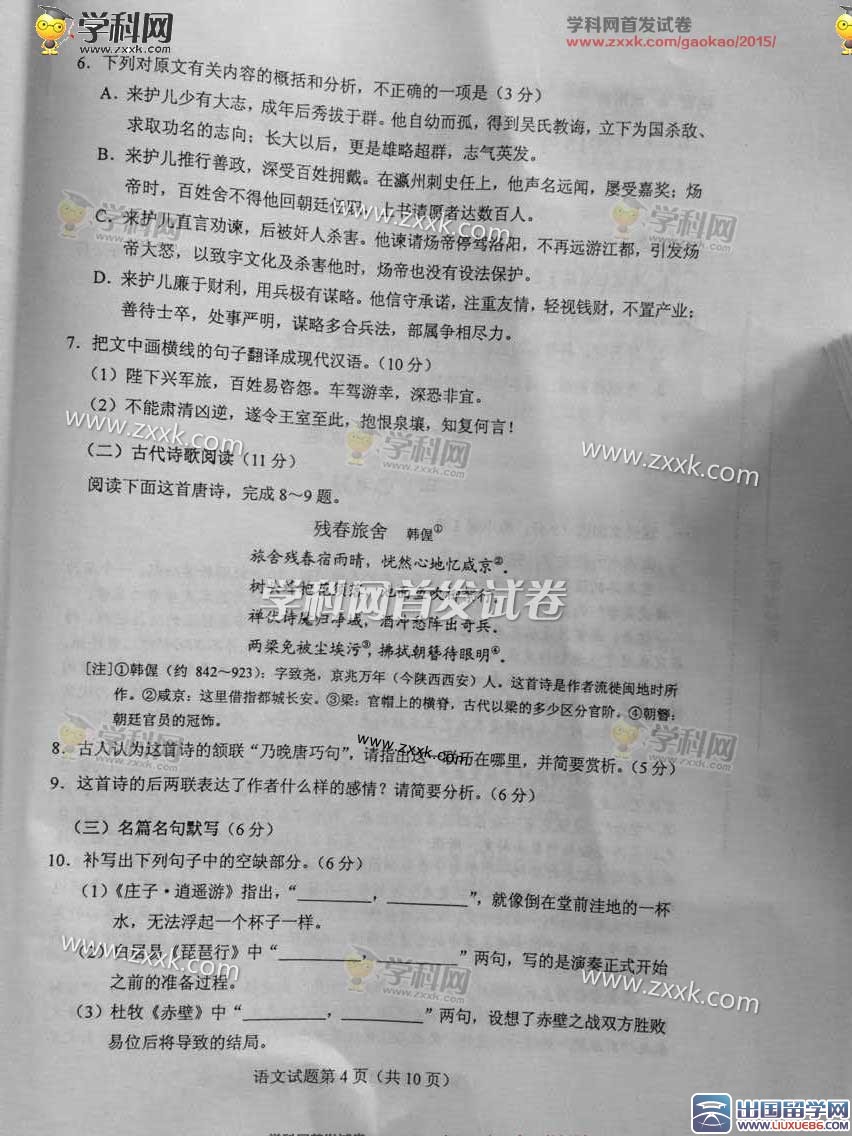 学科网
www.zxxk.com
学科网首发试卷
www.zxxk.com/gaokao/2015/
6．下列对原文有关内容的概括和分析，不正确的一项是（3分）
A．来护儿少有大志，成年后秀拔于群。他自幼而孤，得到吴氏教诲，立下为国杀敌、
求取功名的志向；长大以后，更是雄略超群，志气英发。
B．来护儿推行善政，深受百姓拥戴。在瀛州刺史任上，他声名远闻，屡受嘉奖；炀
帝时，百姓舍不得他回朝廷 上书请愿者达数百人。
C．来护儿直言劝谏，后被奸人杀害。他谏请炀帝停驾洛阳，不再远游江都，引发炀
帝大怒，以致宇文化及杀害他时，炀帝也没有设法保护。
D．来护儿廉于财利，用兵极有谋略。他信守承诺，注重友情，轻视钱财，不置产业；
善待士卒，处事严明，谋略多合兵法，部属争相尽力。
7．把文中画横线的句子翻译成现代汉语。（10分）
（1）陛下兴军旅，百姓易咨怨。车驾游幸，深恐非宜。
（2）不能肃清凶逆，遂令王室至此，抱恨泉壤，知复何言！
（二）古代诗歌阅读（11分）
阅读下面这首唐诗，完成8～9题。
残春旅舍 韩偓①
旅舍残春宿雨晴，恍然心地忆咸京②。
树头
学科网首发试卷
禅伏诗魔归净域，酒冲愁阵出奇兵。
两梁免被尘埃污③，拂拭朝簪待眼明④。
[注]①韩偓（约 842～923）：字致尧，京兆万年（今陕西西安）人。这首诗是作者流徙闽地时所
作。②咸京：这里借指都城长安。③梁：官帽上的横脊，古代以梁的多少区分官阶。④朝簪：
朝廷官员的冠饰。
8．古人认为这首诗的颔联“乃晚唐巧句”，请指出这 巧在哪里，并简要赏析。（5分）
9．这首诗的后两联表达了作者什么样的感情？请简要分析。（6分）
（三）名篇名句默写（6分）
10．补写出下列句子中的空缺部分。（6分）
（1）《庄子·逍遥游》指出，“________，________”，就像倒在堂前洼地的一杯
水，无法浮起一个杯子一样。
（2）白居易《琵琶行》中“________，________”两句，写的是演奏正式开始
之前的准备过程。
（3）杜牧《赤壁》中“________，________”两句，设想了赤壁之战双方胜败
易位后将导致的结局。
语文试题第 4 页（共 10 页）
出国留学网
WWW.LIUXUE86.COM